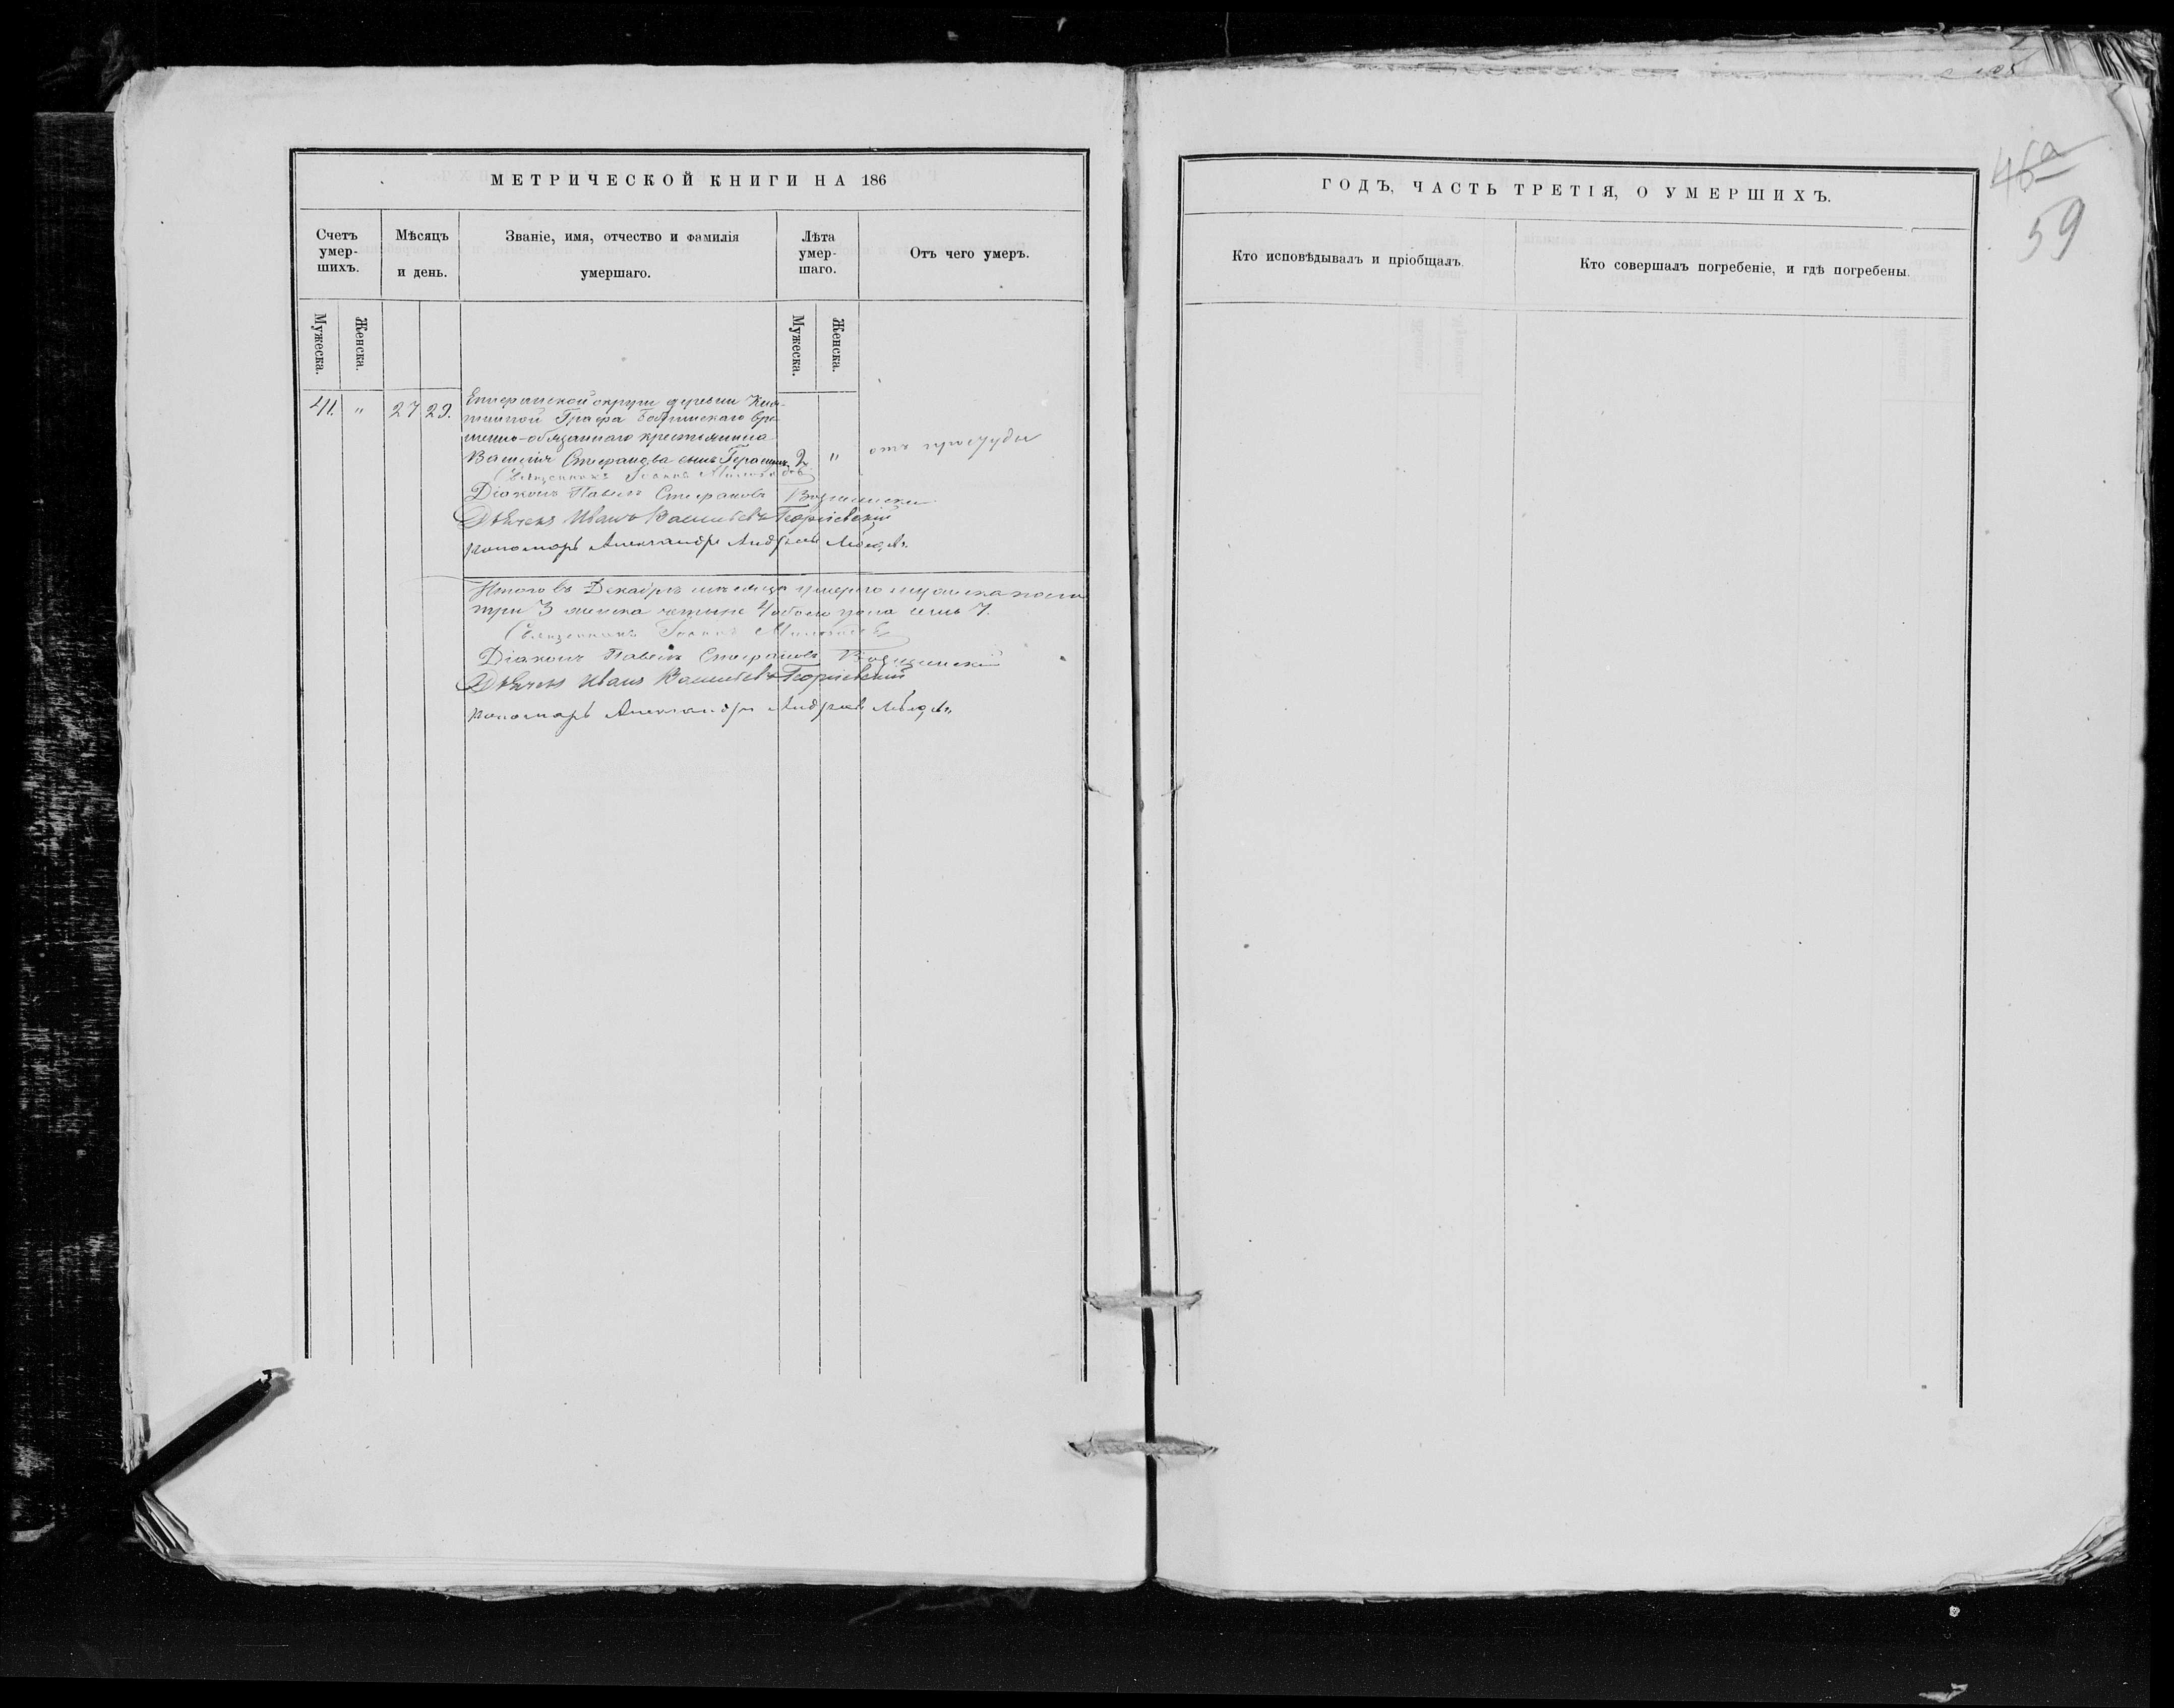 МЕТРИЧЕСКОЙ КНИГИ НА 186
Счетъ умер-
шихъ.
Мѣсяцъ
и день.
Званіе, имя, отчество и фамилія
умершаго.
Лѣта
умер-
шаго.
Отъ чего умеръ.
Мужеска.
Женска.
Мужеска.
Женска.
41. " 27 29.
Епифанской округи деревни
Графа Бобринскаго вре-
менно-обязаннаго крестьянина
Василія Стефанова сынъ Герасимъ 2 " отъ простуды
Священникъ Іоаннъ
Діаконъ Павелъ Стефановъ
Дьячекъ Иванъ Васильевъ Георгіевскій
пономарь Александръ Андреевъ
Итого въ Декабрѣ мѣсяцѣ умерло мужеска пола
три 3 женска четыре 4 обоего пола семь 7.
Священникъ Іоаннъ
Діаконъ Павелъ Стефановъ
Дьячекъ Иванъ Васильевъ Георгіевскій
пономарь Александръ Андреевъ
ГОДЪ, ЧАСТЬ ТРЕТІЯ, О УМЕРШИХЪ.
Кто исповѣдывалъ и пріобщалъ.
Кто совершалъ погребеніе, и гдѣ погребены.
46а
59